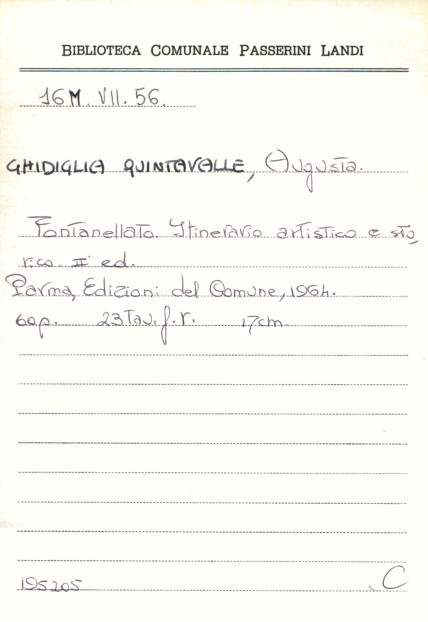 BIBLIOTECA COMUNALE PASSERINI LANDI
16M. VII. 56.
GHIDIGLIA QUINTAVALLE, Augusta.
Fontanellato. Itinerario artistico e sto,
rico. II ed.
Parma, Edizioni del Comune, 1964.
60p. 23 Tav. f. r. 17cm.
195205 C